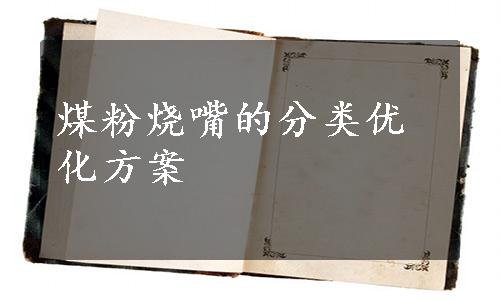 煤粉烧嘴的分类优
化方案